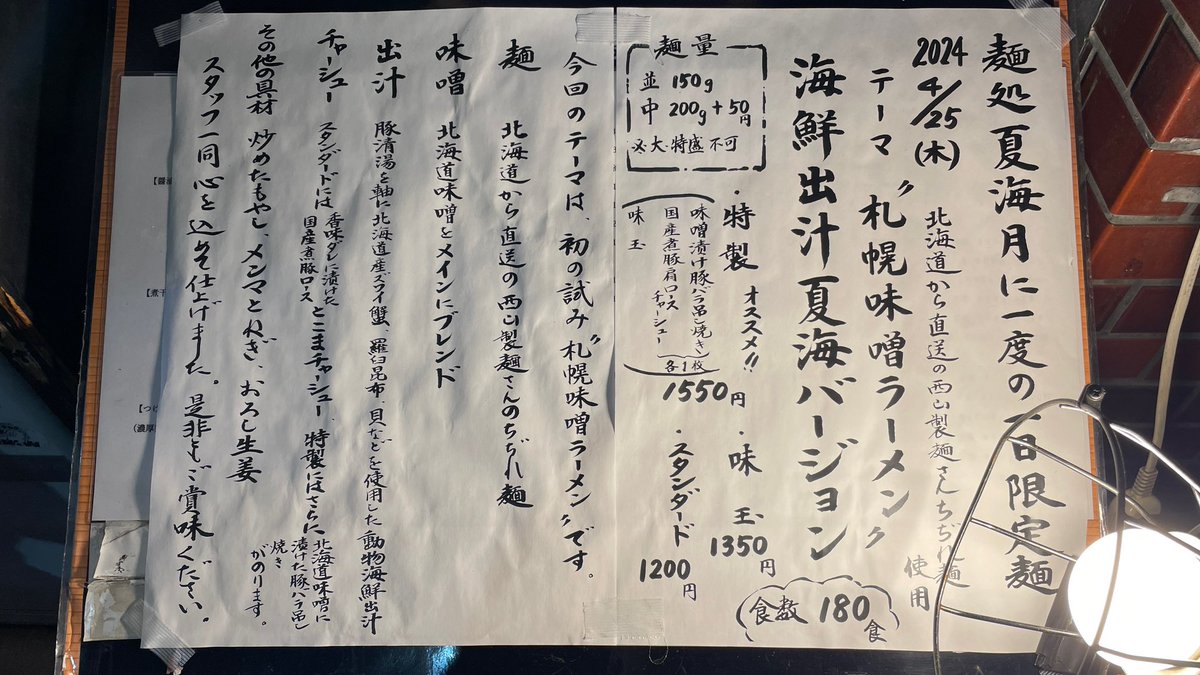 麺処夏海月に一度の一日限定麺
2024
4/25
(木)
北海道から直送の西山製麺さんちぢれ麺
使用
テーマ 〝札幌味噌ラーメン〟
海鮮出汁夏海バージョン
麺量
並 150g
中 200g+50円
※大・特盛不可
・特製 オススメ!!
味噌漬け豚バラ吊し焼き
国産煮豚肩ロース
チャーシュー
各1枚
味玉
1550円
・味玉
1350円
・スタンダード
1200円
食数 180食
今回のテーマは、初の試み〝札幌味噌ラーメン〟です。
麺 北海道から直送の西山製麺さんのちぢれ麺
味噌 北海道味噌をメインにブレンド
出汁 豚清湯を軸に北海道産ズワイ蟹、羅臼昆布、貝などを使用した動物海鮮出汁
チャーシュー スタンダードには 香味ダレに漬けた国産煮豚ロース とこまチャーシュー、特製にはさらに 北海道味噌に漬けた豚バラ吊し焼き がのります。
その他の具材 炒めたもやし、メンマとねぎ、おろし生姜
スタッフ一同心を込めて仕上げました。是非ともご賞味ください。
【醤油
【煮干
【つけ
(濃厚